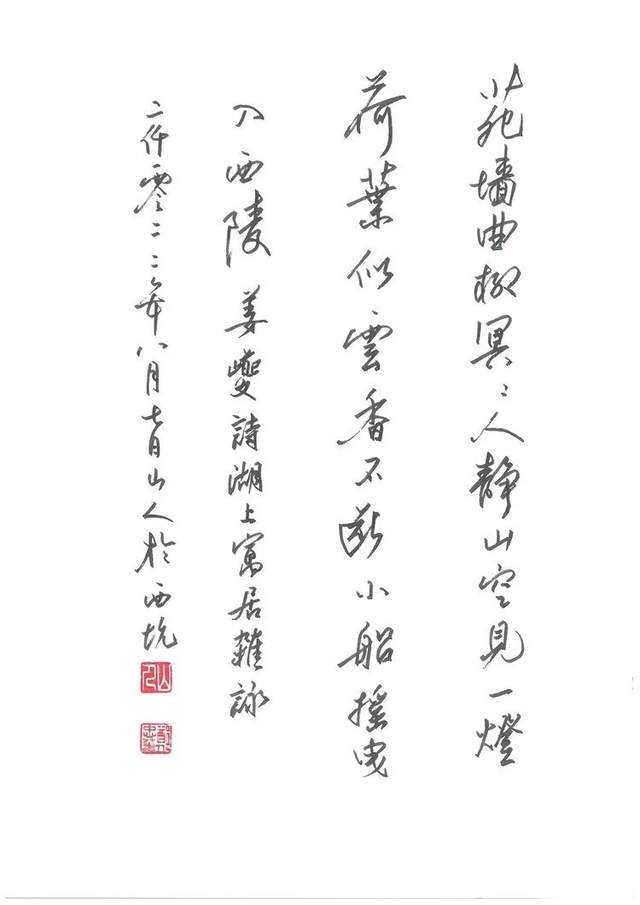 苑墻曲柳冥〻人靜山空見一燈
荷葉似雲香不斷小船摇曳
入西陵 姜夔詩湖上寓居雜詠
二仟零二二年八月七日山人於西坑
山人